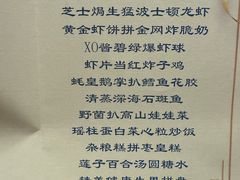 芝士焗生猛波士顿龙虾
黄金虾饼拼金网炸脆奶
XO酱碧绿爆虾球
虾片当红炸子鸡
蚝皇鹅掌扒鳕鱼花胶
清蒸深海石斑鱼
野菌扒高山娃娃菜
瑶柱蛋白菜心粒炒饭
杂粮糕拼枣皇糕
莲子百合汤圆糖水